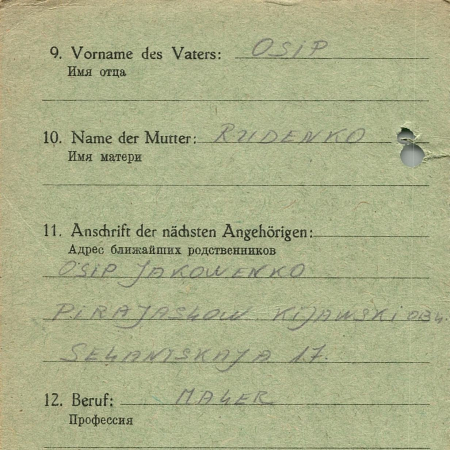 9. Vorname des Vaters: OSIP
Имя отца
10. Name der Mutter: RUDENKO
Имя матери
11. Anschrift der nächsten Angehörigen:
Адрес ближайших родственников
OSIP JAKOWENKO
PIRAJASŁOW KIJAWSKI OBŁ.
SEŁANTSKAJA 17.
12. Beruf: MALER
Профессия